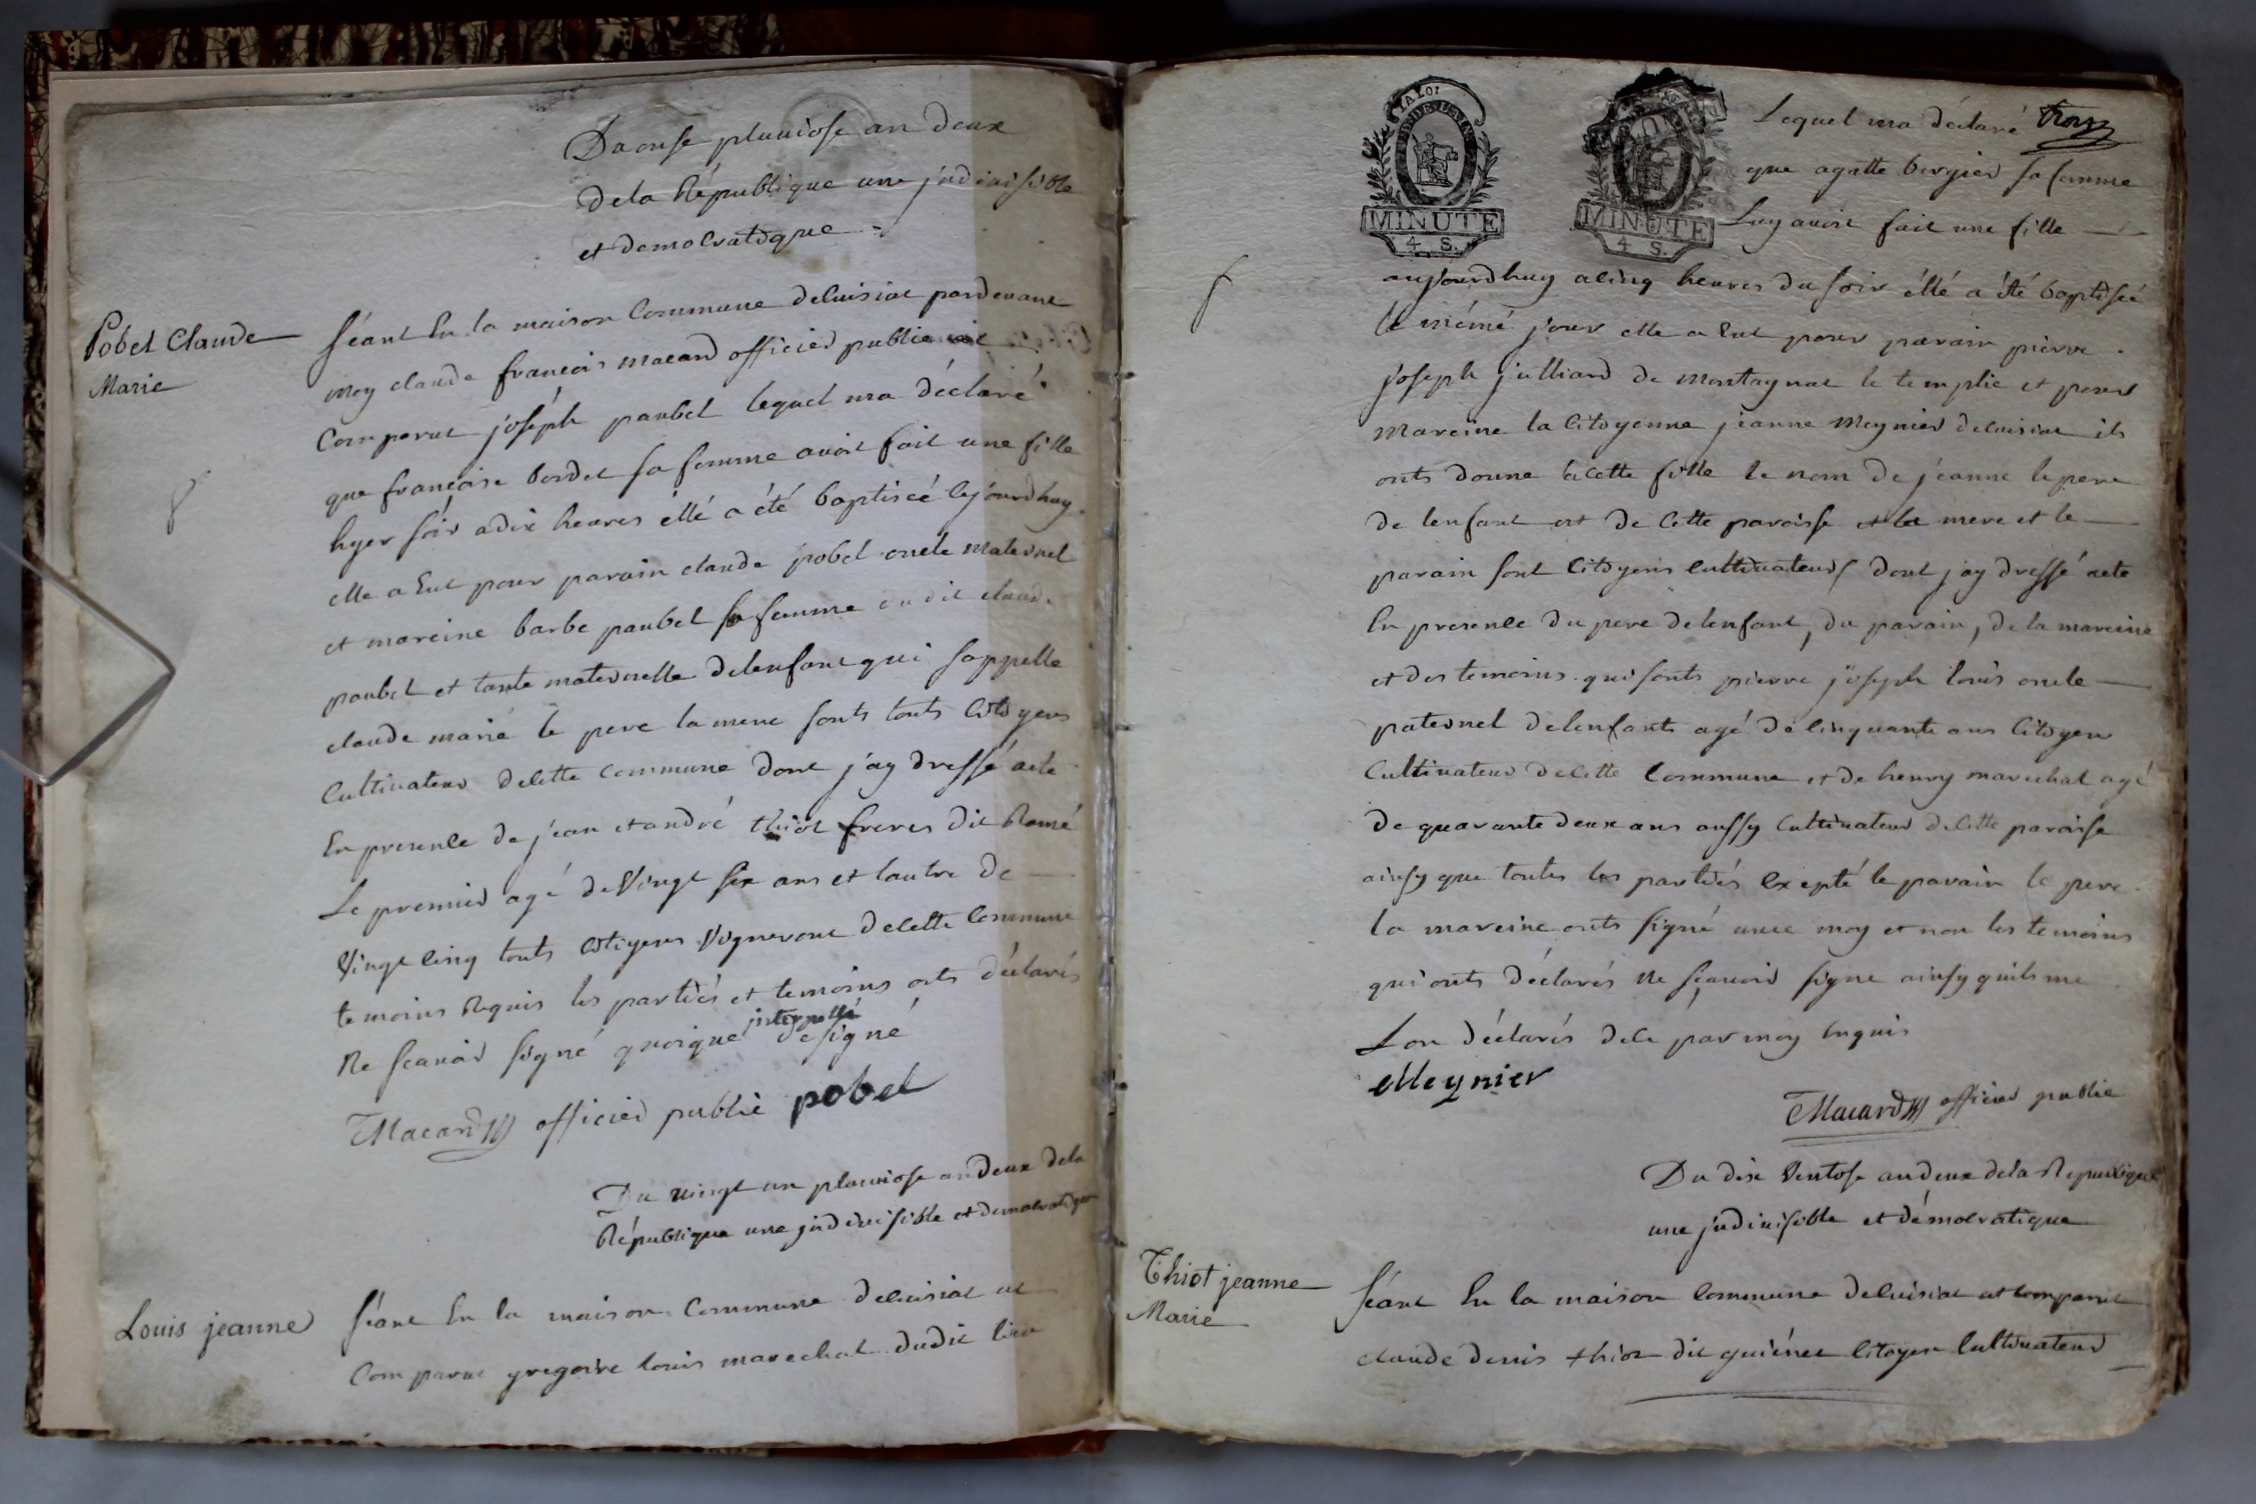 Du onse pluviose an deux
de la République une jndivisible
et democratique
Pobel Claude
Marie
séant En la maison Commune de Cuisiat pardevant
moy claude francois macard officier public
Comparut joséph paubel lequel ma déclaré
que francoise bordet sa femme avoit fait une fille
hyer soir a dix heures éllé a été baptiseé cejourdhuy
elle a Eut pour parain claude pobel oncle maternel
et mareine barbe paubel sa femme du dit claude
paubel et tante maternelle delenfant qui sappelle
claude marie le pere la mere sonts touts Citoyens
Cultivateur de cette commune dont jay dressé acte
En presence de jean et andré thiot freres dit Romé
Le premier agé de Vingt six ans et lautre de
Vingt cinq touts citoyens Vigneront de cette Commune
temoins Requis les partiés et temoins onts déclarés
Ne scavoir signé quoique jnterpellé de signé
Macard officier public pobel
Du vingt un pluviose an deux de la
République une jndivisible et democratique
Louis jeanne
séant En la maison Commune de Cuisiat at
Comparut gregoire louis marechal dudit lieu
LA LOI
MINUTE
4 S.
MINUTE
4 S.
Lequel ma déclaré
que agatte bergier sa femme
Luy avoit fait une fille
aujourdhuy a cinq heures du soir éllé a été baptiseé
le mémé jour elle a Eut pour parain pierre
joseph julliard de montagnat le templie et pour
Mareine la Citoyenne jeanne Meynier de Cuisiat ils
onts donne a cette fille le nom de jeanne le pere
de lenfant est de Cette paroisse et la mere et le
parain sont Citoyens Cultivateurs dont jay dressé acte
En presence du pere delenfant, du parain, de la mareine
et des temoins qui sonts pierre joseph louis oncle
paternel delenfants agé de Cinquante ans Citoyen
Cultivateur de Cette Commune et de henry marechal agé
de quarante deux ans aussy Cultivateur de Cette paroisse
ainsy que toutes les partiés Excepté le parain le pere
la mareine onts signé avec moy et non les temoins
qui onts déclarés Ne scavoir signe ainsy quils me
Lon déclarés de ce par moy Enquis
Meynier
Macard officier public
Du dix Ventose an deux de la Republique
une jndivisible et démocratique
Thiot jeanne
Marie
séant En la maison Commune de Cuisiat at comparut
claude denis thiot dit guiénet Citoyen Cultivateur